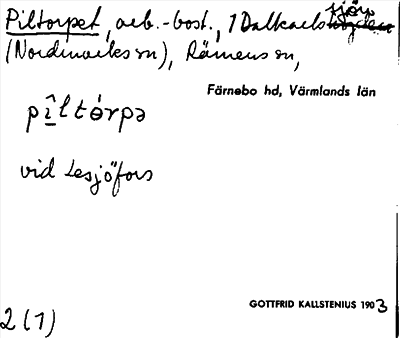 Piltorpet, arb.-bost., 1 Dalkarlssjöhyttan
(Nordmarks sn), Rämens sn,
Färnebo hd, Värmlands län
pîltórpə
vid Lesjöfors
GOTTFRID KALLSTENIUS 1903
2 (1)